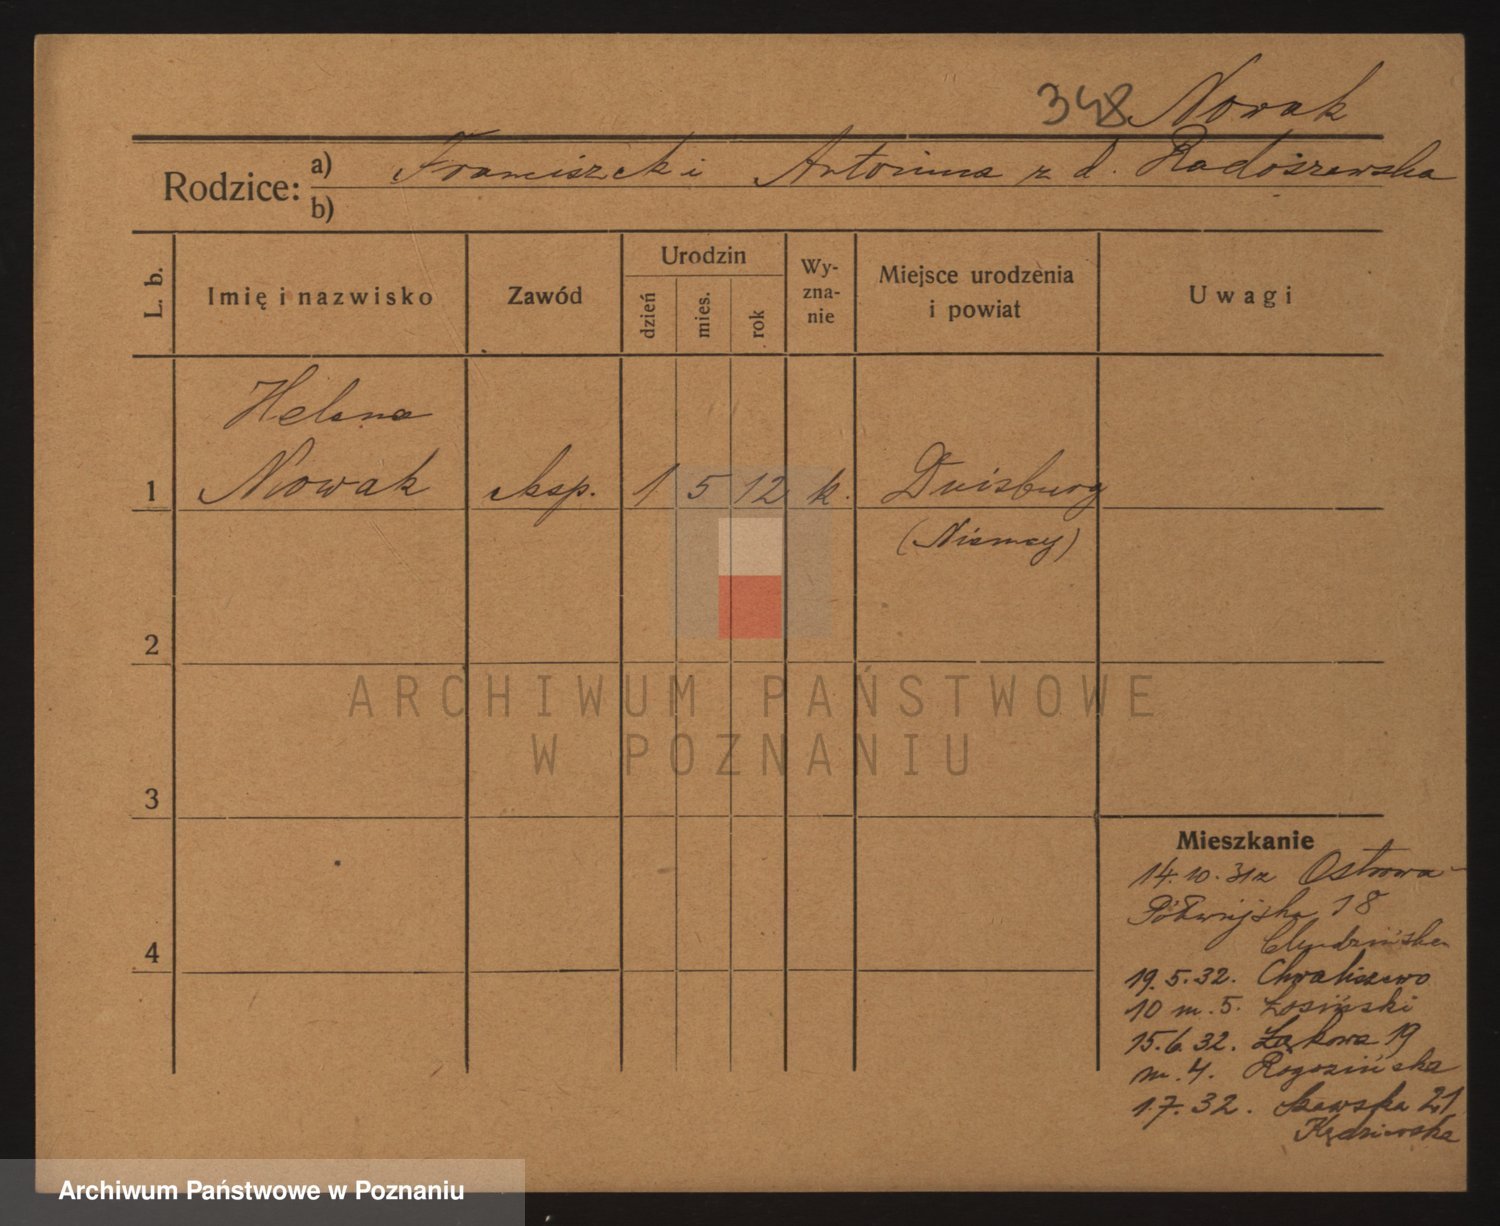 348 Nowak
Rodzice: a) Franciszek i Antonina z d. Radoszewska
b)
L. b.
Imię i nazwisko
Zawód
Urodzin
dzień
mies.
rok
Wy-
zna-
nie
Miejsce urodzenia
i powiat
Uwagi
Helena
1 Nowak eksp. 1 5 12 k. Duisburg
(Niemcy)
2
ARCHIWUM PAŃSTWOWE
W POZNANIU
3
Mieszkanie
14.10.31 z Ostrowa-
18
4
19.5.32. Chwaliszewo
10 m. 5. Łosiński
15.6.32. Łąkowa 19
m. 4. Rogozińska
1.7.32. 21
Archiwum Państwowe w Poznaniu